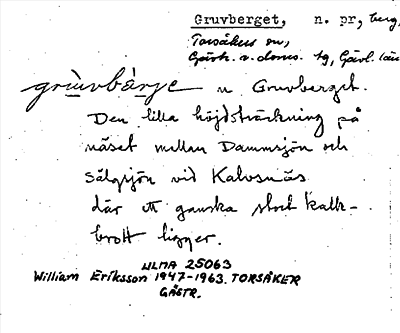 Gruvberget, n. pr, berg,
Torsåkers sn,
Gästr. v. doms. tg, Gävl. län
grùvbàrje n Gruvberget.
Den lilla höjdsträckning på
näset mellan Dammsjön och
Sälgsjön vid Kalvsnäs
där ett ganska stort kalk-
brott ligger.
ULMA 25063
William Eriksson 1947-1963. TORSÅKER
GÄSTR.